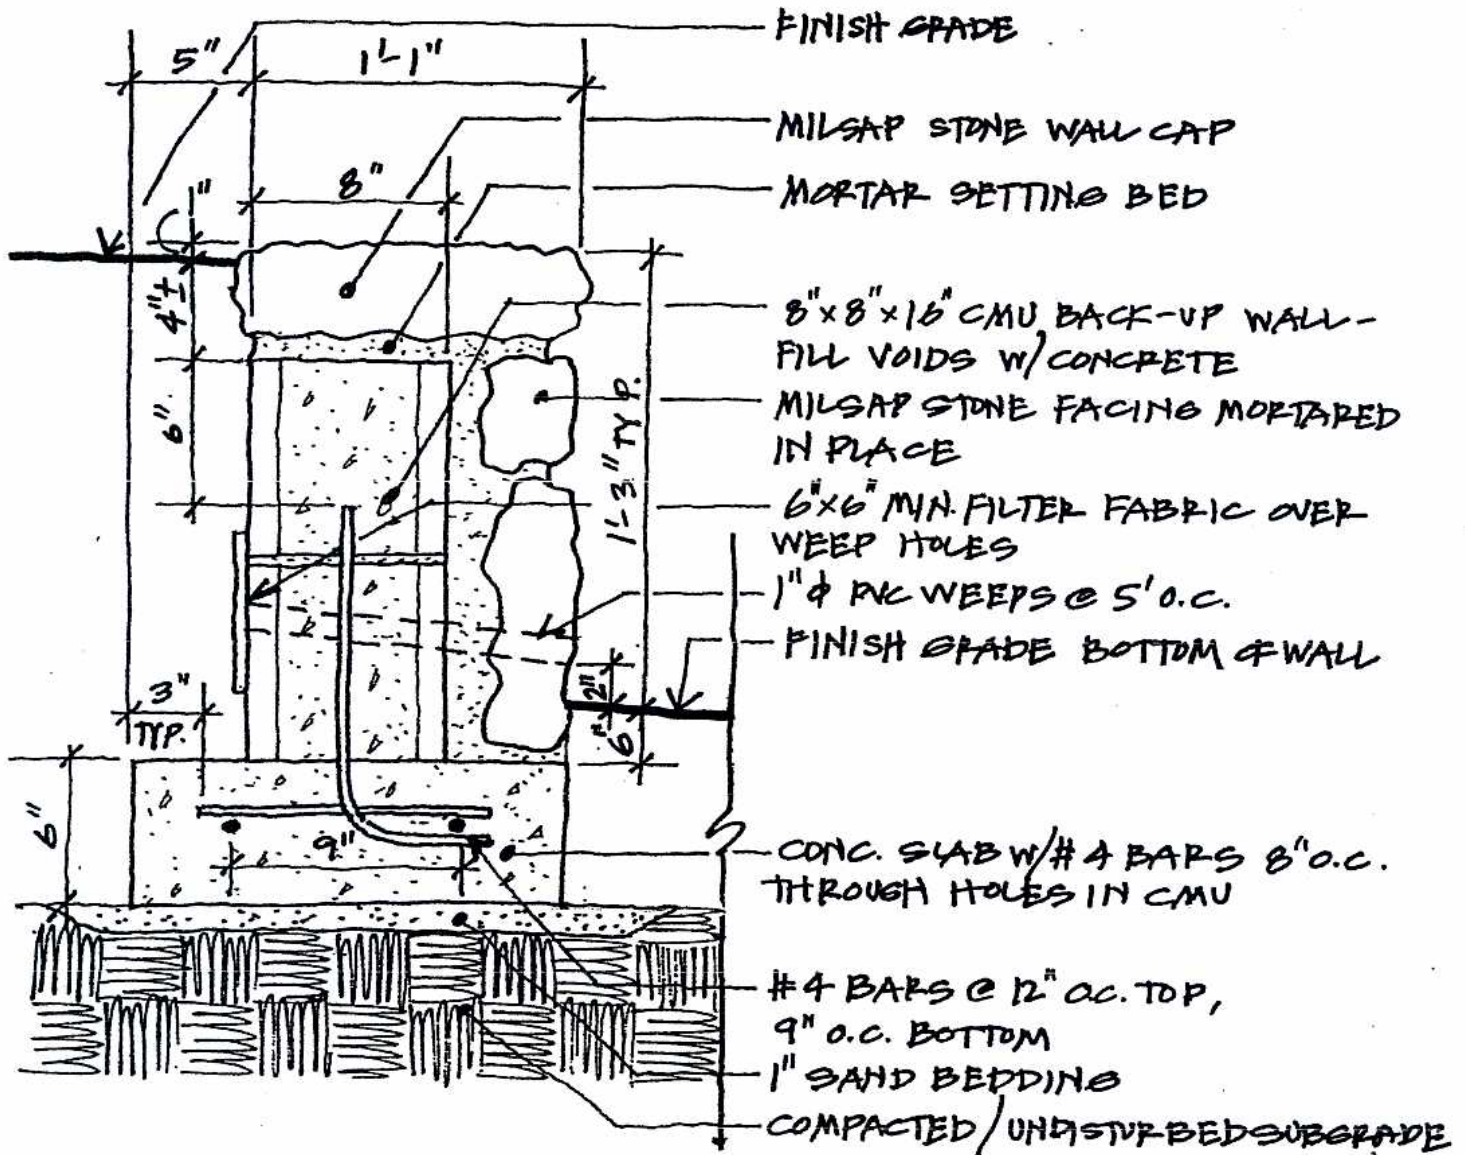 FINISH GRADE
5"
1'-1"
MILSAP STONE WALL CAP
8"
1"
MORTAR SETTING BED
4"±
8"x8"x16" CMU BACK-UP WALL-
FILL VOIDS W/CONCRETE
6"
1'-3" TYP.
MILSAP STONE FACING MORTARED
IN PLACE
6"x6" MIN. FILTER FABRIC OVER
WEEP HOLES
1"ϕ PVC WEEPS @ 5' O.C.
FINISH GRADE BOTTOM OF WALL
3"
TYP.
2"
6"
6"
9"
CONC. SLAB W/#4 BARS 8" O.C.
THROUGH HOLES IN CMU
#4 BARS @ 12" O.C. TOP,
9" O.C. BOTTOM
1" SAND BEDDING
COMPACTED/UNDISTURBED SUBGRADE